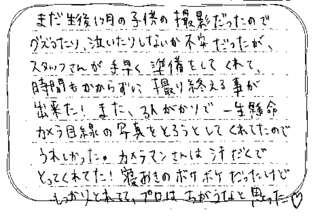 まだ生後1ヶ月の子供の撮影だったので
グズったり、泣いたりしないか不安だったが、
スタッフさんが手早く準備をしてくれて、
時間もかからずに撮り終える事が
出来た！また、3人がかりで一生懸命
カメラ目線の写真をとろうとしてくれたので
うれしかった。カメラマンさんは汗だくで
とってくれてた！寝おきのボケボケだったけど
しっかりとれてて、プロはちがうなと思った♡